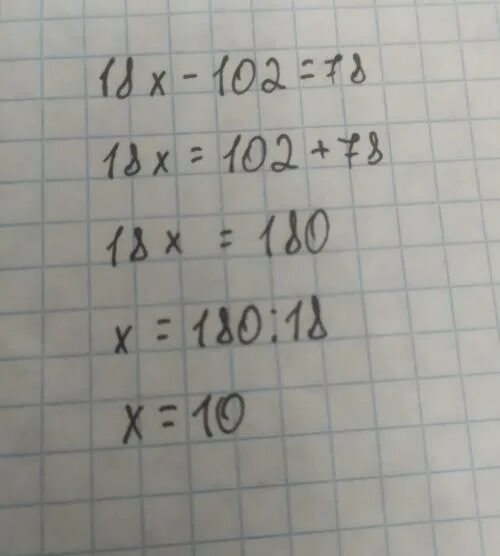 18x - 102 = 78
18x = 102 + 78
18x = 180
x = 180 : 18
x = 10